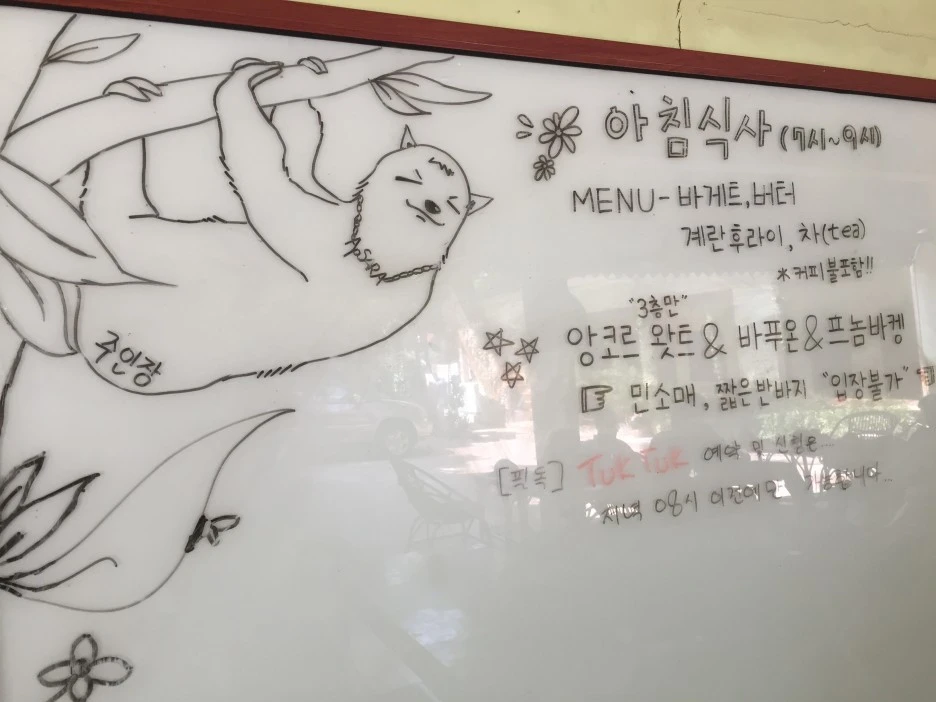 아침식사 (7시~9시)
MENU - 바게트, 버터
계란후라이, 차(tea)
*커피불포함!!
"3층만"
앙코르 왓트 & 바푸온 & 프놈바켕
민소매, 짧은반바지 "입장불가"
[필독] TUK TUK 예약 및 신청은...
저녁 08시 이전에만 가능합니다...
주인장